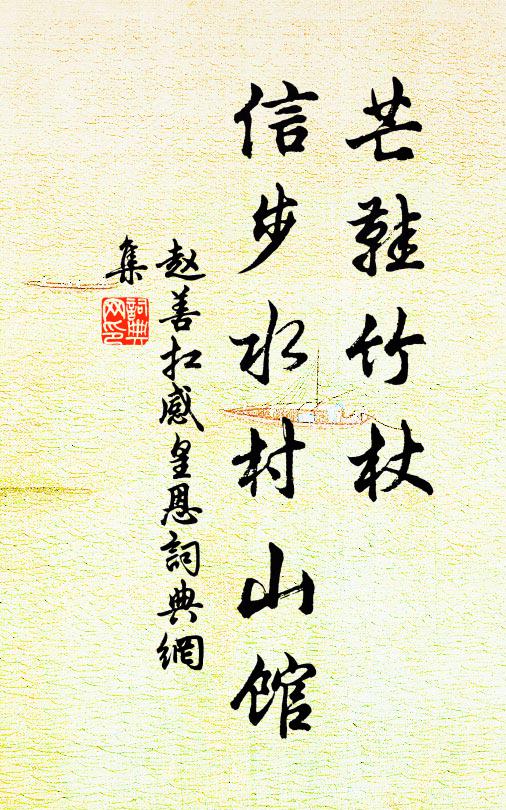 芒鞋竹杖
信步水村山馆
赵善扛感皇恩詞典網
集
詞典网印